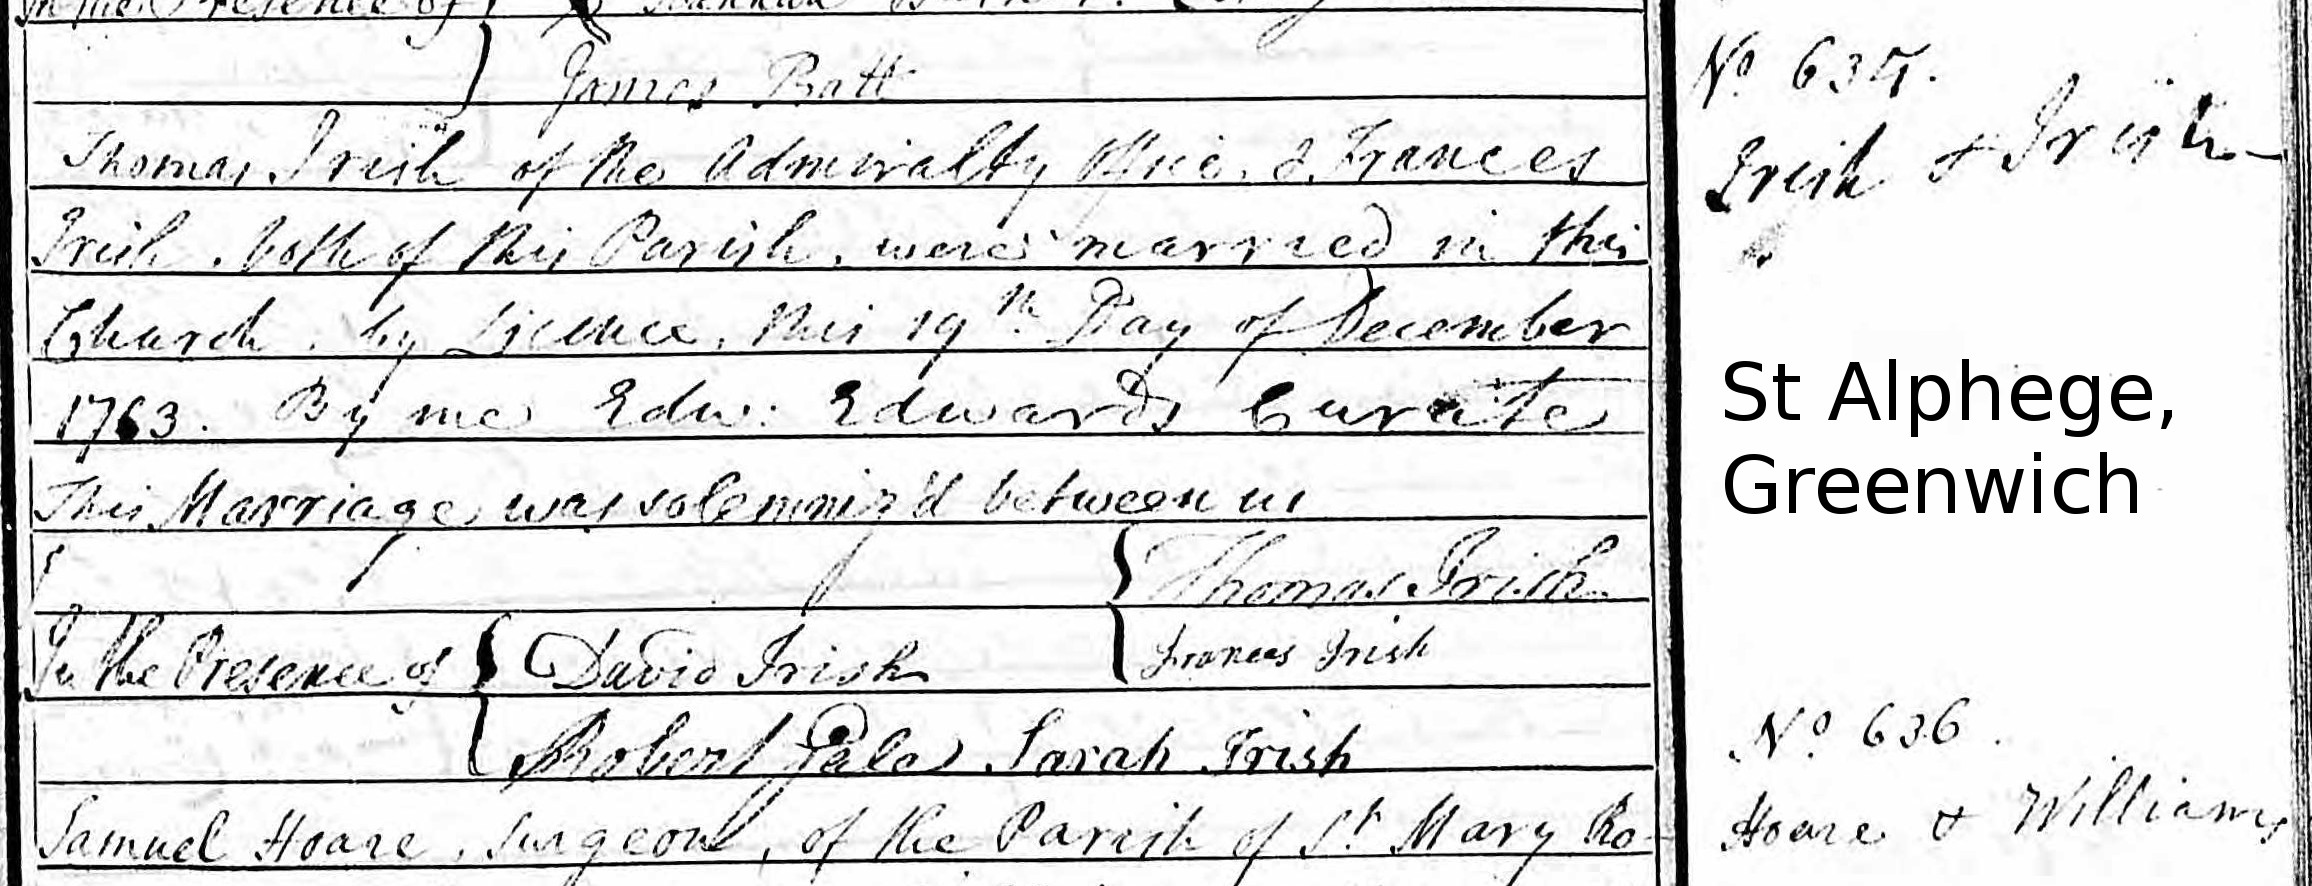 In the Presence of
James Batt
Thomas Irish of the Admiralty Office, & Frances
Irish, both of this Parish, were married in this
Church, by Licence, this 19th Day of December
1763. By me Edw: Edwards Curate
This Marriage was solemniz'd between us
Thomas Irish
Frances Irish
In the Presence of David Irish
Robert Sarah Irish
Samuel Hoare, Surgeon, of the Parish of St Mary Ro-
No 635.
Irish & Irish
St Alphege,
Greenwich
No 636.
Hoare & Williams